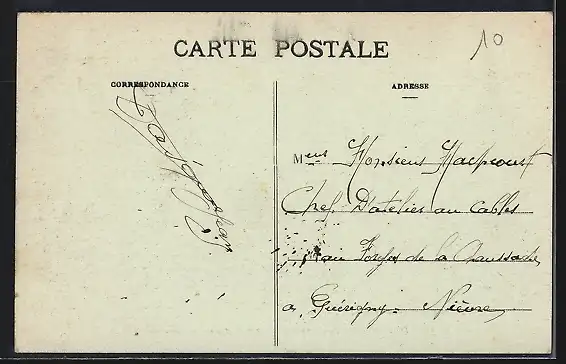 10
CARTE POSTALE
CORRESPONDANCE
ADRESSE
M
Monsieur
Chef D'atelier au Cables
au Forges de la Chaussade
a Guérigny. Nièvre